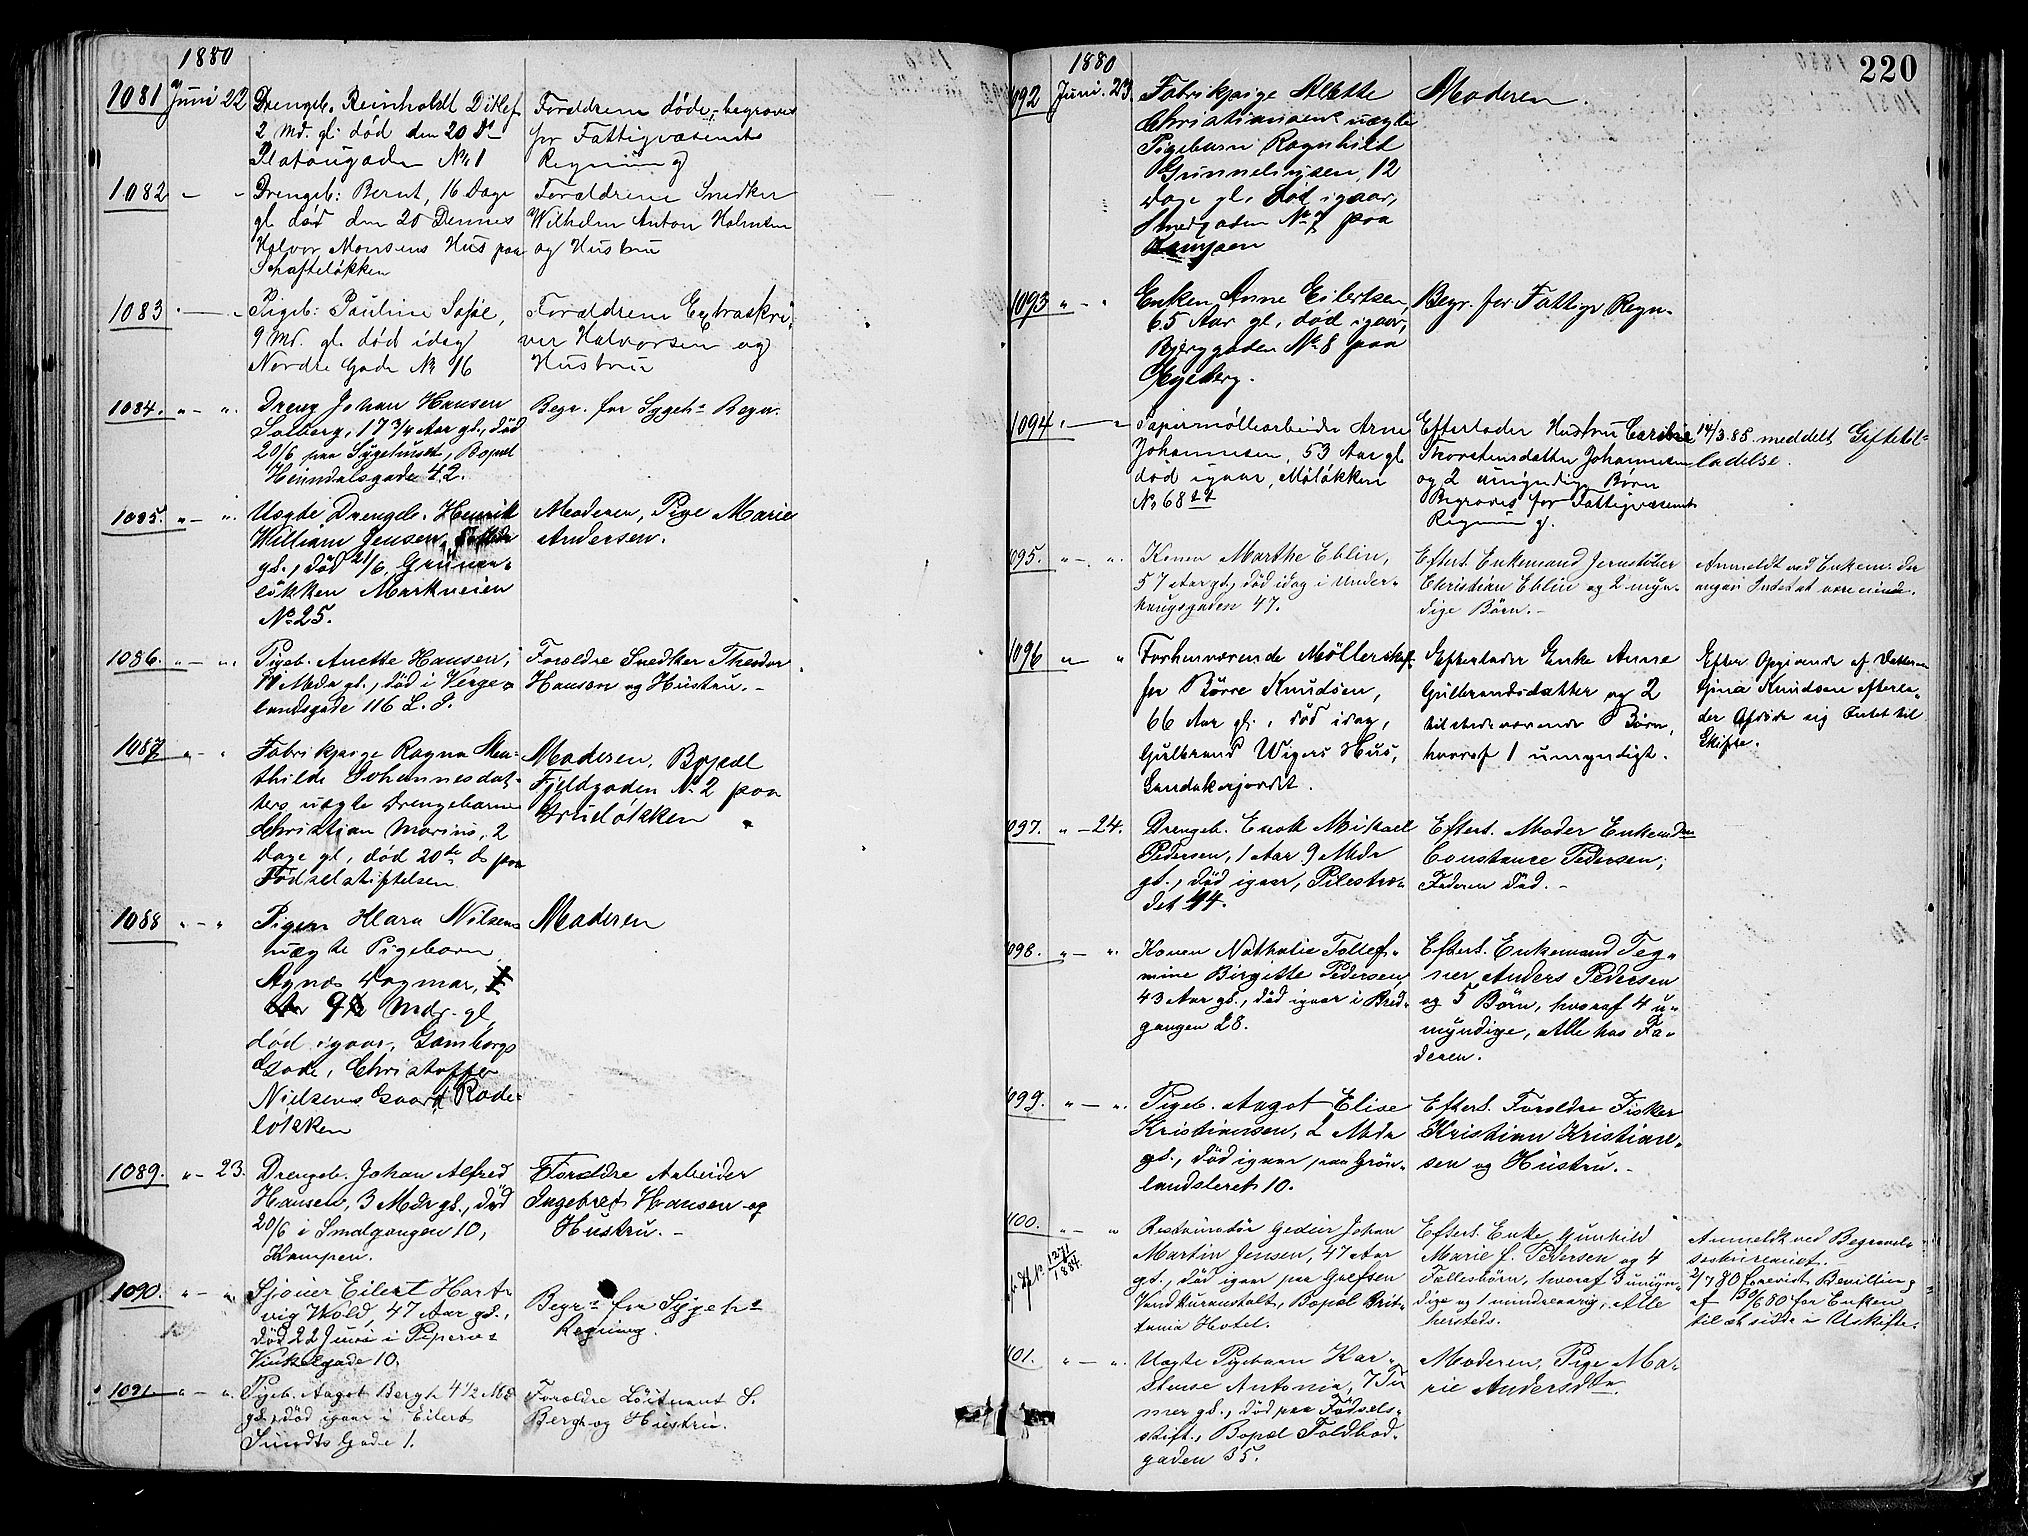 1880
1081 Juni 22 Drengeb. Reinholdt Ditlef
2 Md. gl. død den 20 Ds
Platougaden No 1
Forældrene døde, begraves
for Fattigvæsenets
Regning
1082 " " Drengeb: Bernt, 16 Dage
gl. død den 20 Dennes
Halvor Monsens Hus paa
Schafteløkken
Forældrene Snedker
Wilhelm Anton Holmsen
og Hustru
1083 " " Pigeb: Pauline
9 Md. gl. død idag
Nordre Gade No 16
Forældrene Extraskri-
ver Halvorsen og
Hustru
1084. " - " Dreng Johan Hansen
Solberg, 17 3/4 Aar gl., død
20/6 paa Sygehuset, Bopæl
Heimdalsgade 42.
Begr. for Sygehs Regn.
1085. " - " Uægte Drengeb. Henrik
William Jensen,
gl., død 21/6, Grüner-
løkken Markveien
No 25.
Moderen, Pige Marie
Andersen.
1086. " - " Pigeb. Anette Hansen,
11 Mdr gl., død i Verge-
landsgade 116 L. G.
Forældre Snedker Theodor
Hansen og Hustru. -
1087 " - " Fabrikpige Ragna Ma-
thilde Johannesdat-
ters uægte Drengebarn
Christian Marius, 2
Dage gl., død 20de ds paa
Fødselsstiftelsen
Moderen, Bopæl
Fjeldgaden No 2 paa
Ørneløkken
1088 " - " Pigen Klara Nilsens
uægte Pigebarn
Agnes Dagmar,
9 Mdr. gl.
død igaar, Gamborgs
Gade, Christoffer
Nielsens Gaard Rode-
løkken
Moderen
1089. " - 23. Drengeb. Johan Alfred
Hansen, 3 Mdr gl., død
20/6 i Smalgangen 10,
Kampen.
Forældre Arbeider
Ingebret Hansen og
Hustru. -
1090. " - " Sjøuer Eilert Hart-
vig Wold, 47 Aar gl.,
død 22 Juni i Pipervi-
Vinkelgade 10.
Begrs for Sygehs
Regning.
1091. " - " Pigeb. Aagot Bergh 4 1/2 Md
gl., død igaar i Eilert
Sundts Gade 1.
Forældre Löitnant S.
Bergh og Hustru.
220
1880
092 Juni. 23 Fabrikpige Alette
Christiansens uægte
Pigebarn Ragnhild
Gunnelius­en, 12
Dage gl. død igaar,
Smedgaden No 7 paa
Kampen
Moderen.
1093 " - " Enken Anne Eilertsen,
65 Aar gl, død igaar,
Bjerggaden No 8 paa
Egeberg.
Begr. for Fattigv Regn.
1094 " - " Papirmøllearbeider Arne
Johannesen, 53 Aar gl
død igaar, Møløkken
No 68
Efterlader Hustru
Thorstensdatter Johannesen
og 2 umyndige Børn
Begraves for Fattigvæsenets
Regning.
14/3. 85. meddelt Giftetil-
ladelse.
095. " - " Konen Marthe Eblin,
57 Aar gl., død idag i Under-
haugsgaden 47.
Efterl. Enkemand Jernstøber
Christian Eblin og 2 myn-
dige Børn. -
Anmeldt ved Enkem. der
angav Intet at være eiende.
1096 " " Forhenværende Møllerskaf-
fer Börre Knudsen,
66 Aar gl., død idag,
Gulbrand Wigers Hus,
Sandakerjordet.
Efterlader Enke Anne
Gulbrandsdatter og 2
tilstedeværende Børn,
hvoraf 1 umyndigt.
Efter Opgivende af Datteren
Gina Knudsen efterla-
der Afdøde sig Intet til
Skifte.
097. " - 24. Drengeb. Enok Mikael
Pedersen, 1 Aar 9 Mdr
gl., død igaar, Pilestræ-
det 44.
Efterl. Moder Enkemadam
Constance Pedersen;
Faderen død. -
098. " - " Konen Nathalie Tollef-
mine Birgitte Pedersen,
43 Aar gl., død igaar i Bred-
gangen 28.
Efterl. Enkemand Teg-
ner Anders Pedersen
og 5 Børn, hvoraf 4 u-
myndige, Alle hos Fa-
deren.
099. " - " Pigeb. Aagot Elise
Kristiansen, 2 Mdr
gl., død igaar paa Grøn-
landsleret 10.
Efterl. Forældre Fisker
Kristian Kristian-
sen og Hustru. -
100. " - " Restauratør Johan
Martin Jensen, 47 Aar
gl., død igaar paa
Vandkuranstalt, Bopæl Brit-
tania Hotel.
1271/1884.
Efterl. Enke Gunhild
Marie f. Pedersen og 4
Fællesbörn, hvoraf 3 umyn-
dige og 1 mindreaarig, Alle
hersteds.
Anmeldt ved Begravel-
2/7 80 forevist Bevilling
af 30/6 80 for Enken
til at sidde i Uskifte.
101. " - " Uægte Pigebarn Kar-
stense Antonia, 7 Ti-
mer gl., død paa Fødsels-
stift., Bopæl Toldbod-
gaden 35.
Moderen, Pige Ma-
rie Andersdtr.